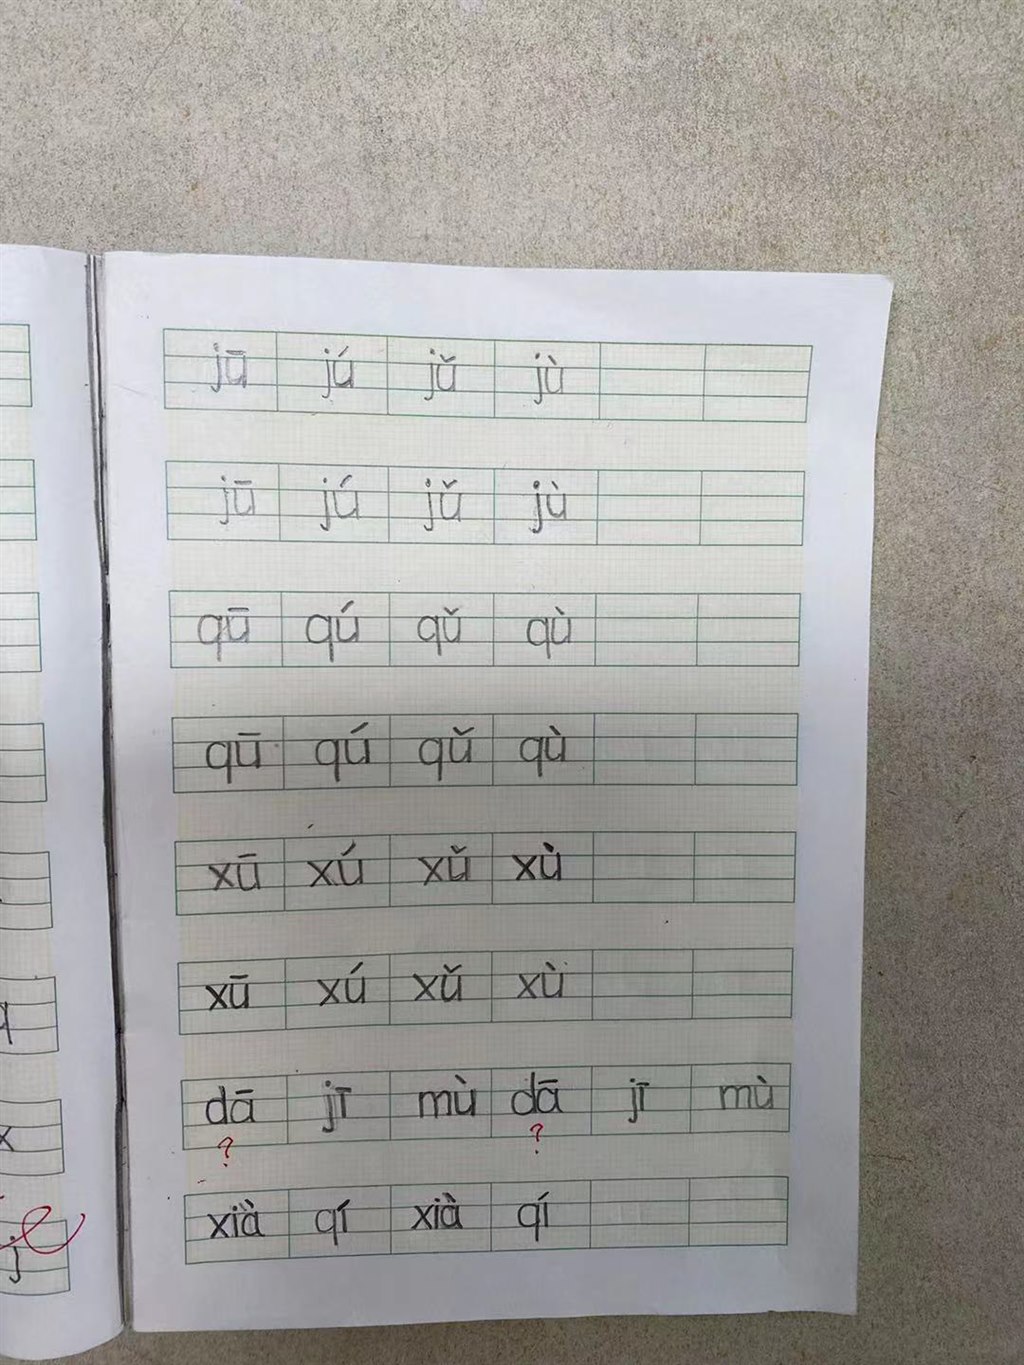 jū jú jǔ jù
jū jú jǔ jù
qū qú qǔ qù
qū qú qǔ qù
xū xú xǔ xù
xū xú xǔ xù
dā jī mù dā jī mù
? ?
xià qí xià qí